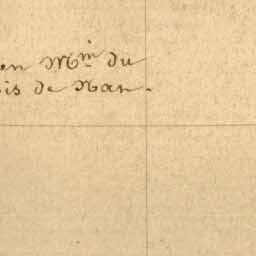 en Mᵐ du
is de Nan.